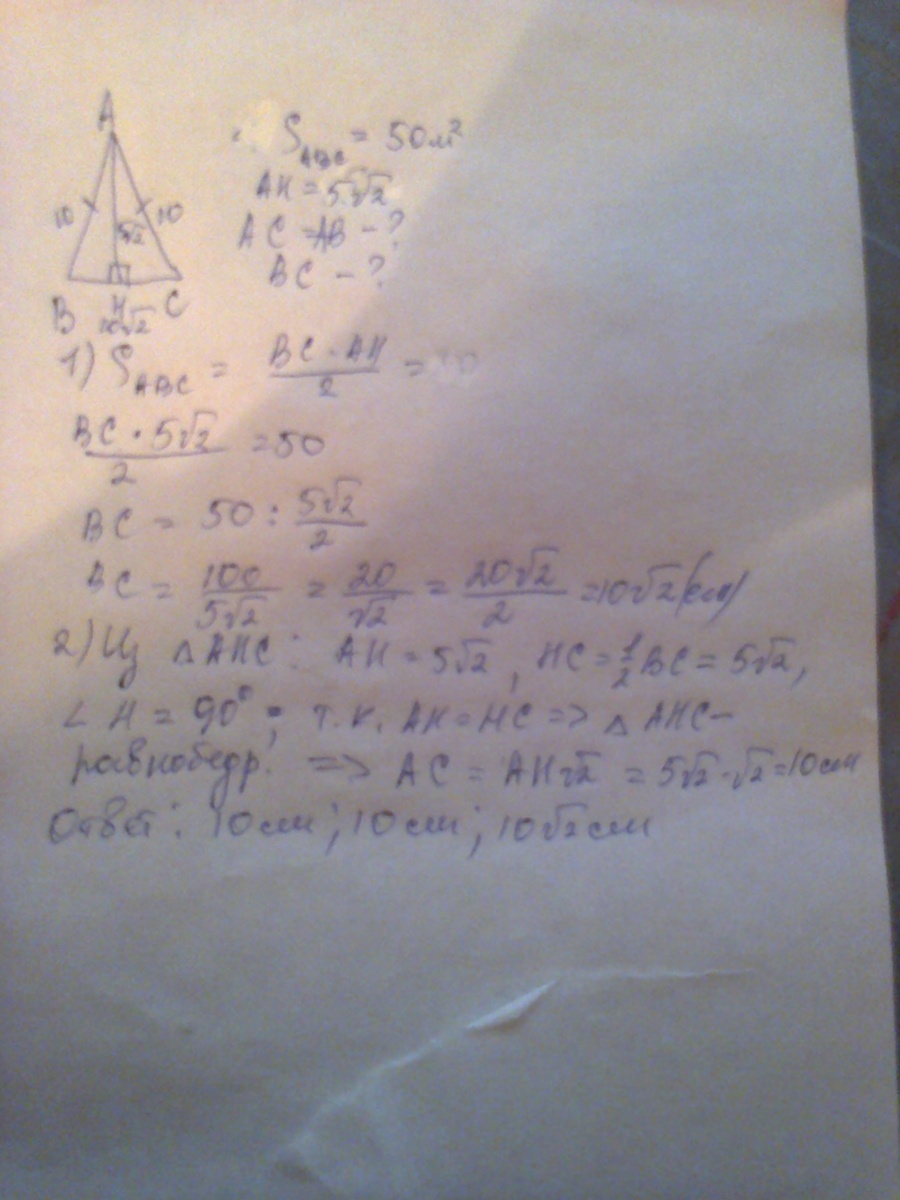 A
10 10
5√2
B H C
10√2
S ABC = 50 м²
AH = 5√2
AC = AB - ?
BC - ?
1) S ABC = BC · AH / 2 =
BC · 5√2 / 2 = 50
BC = 50 : 5√2 / 2
BC = 100 / 5√2 = 20 / √2 = 20√2 / 2 = 10√2 (см)
2) Из △ AHC : AH = 5√2 , HC = 1/2 BC = 5√2,
∠ H = 90° ; т.к. AH = HC => △ AHC -
равнобедр. => AC = AH√2 = 5√2 · √2 = 10 см
Ответ : 10 см ; 10 см ; 10√2 см